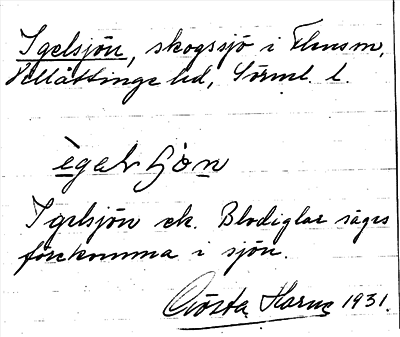 Igelsjön, skogssjö i Flensm,
Villåttinge hd, Sörml. l.
Igelsjön ek. Blodiglar säges
förekomma i sjön.
Gösta Harne 1931.